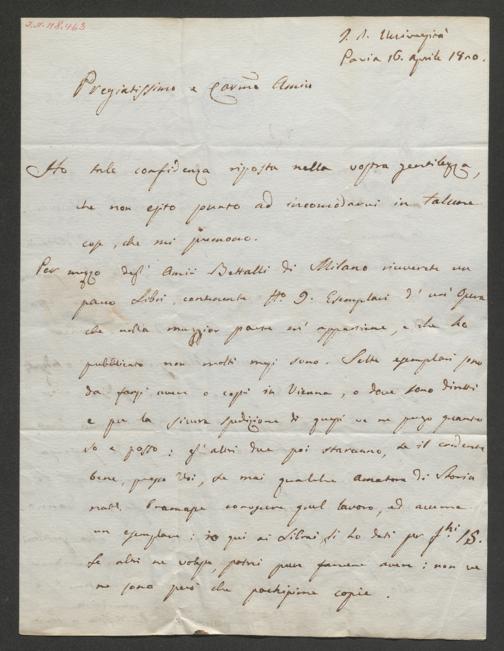 I.N. 48.463
I. R. Università
Pavia 16. aprile 18
Pregiatissimo e Carmo Amico
Ho tale confidenza riposta nella vostra gentilezza,
che non esito punto ad incomodarvi in talune
cose, che mi premono.
Per mezzo degl' Amici Bettalli di Milano riceverete un
pacco Libri, continente No 9. Esemplari d' un' Opera
che nella maggior parte m' appartiene, e che ho
pubblicato non molti mesi sono. Sette esemplari sono
da farsi avere a costì in Vienna, o dove sono diretti
e per la sicura spedizione di questi ve ne prego quanto
so e posso: gl' altri due poi staranno, se il credete
bene, presso Voi, se mai qualche amatore di Storia
natle. bramasse conoscere quel lavoro, ed averne
un esemplare: io qui ai Librai li ho dati per f.hi 15.
Se altri ne volesse, potrei pur farvene avere: non ve
ne sono però che pochissime copie.